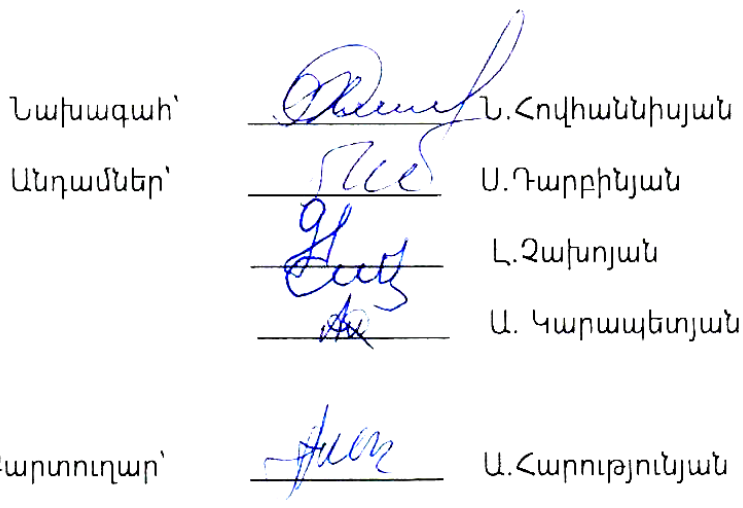 Նախագահ՝ Ն.Հովհաննիսյան
Անդամներ՝ Ս.Դարբինյան
Լ.Չախոյան
Ա. Կարապետյան
արտուղար՝ Ա.Հարությունյան